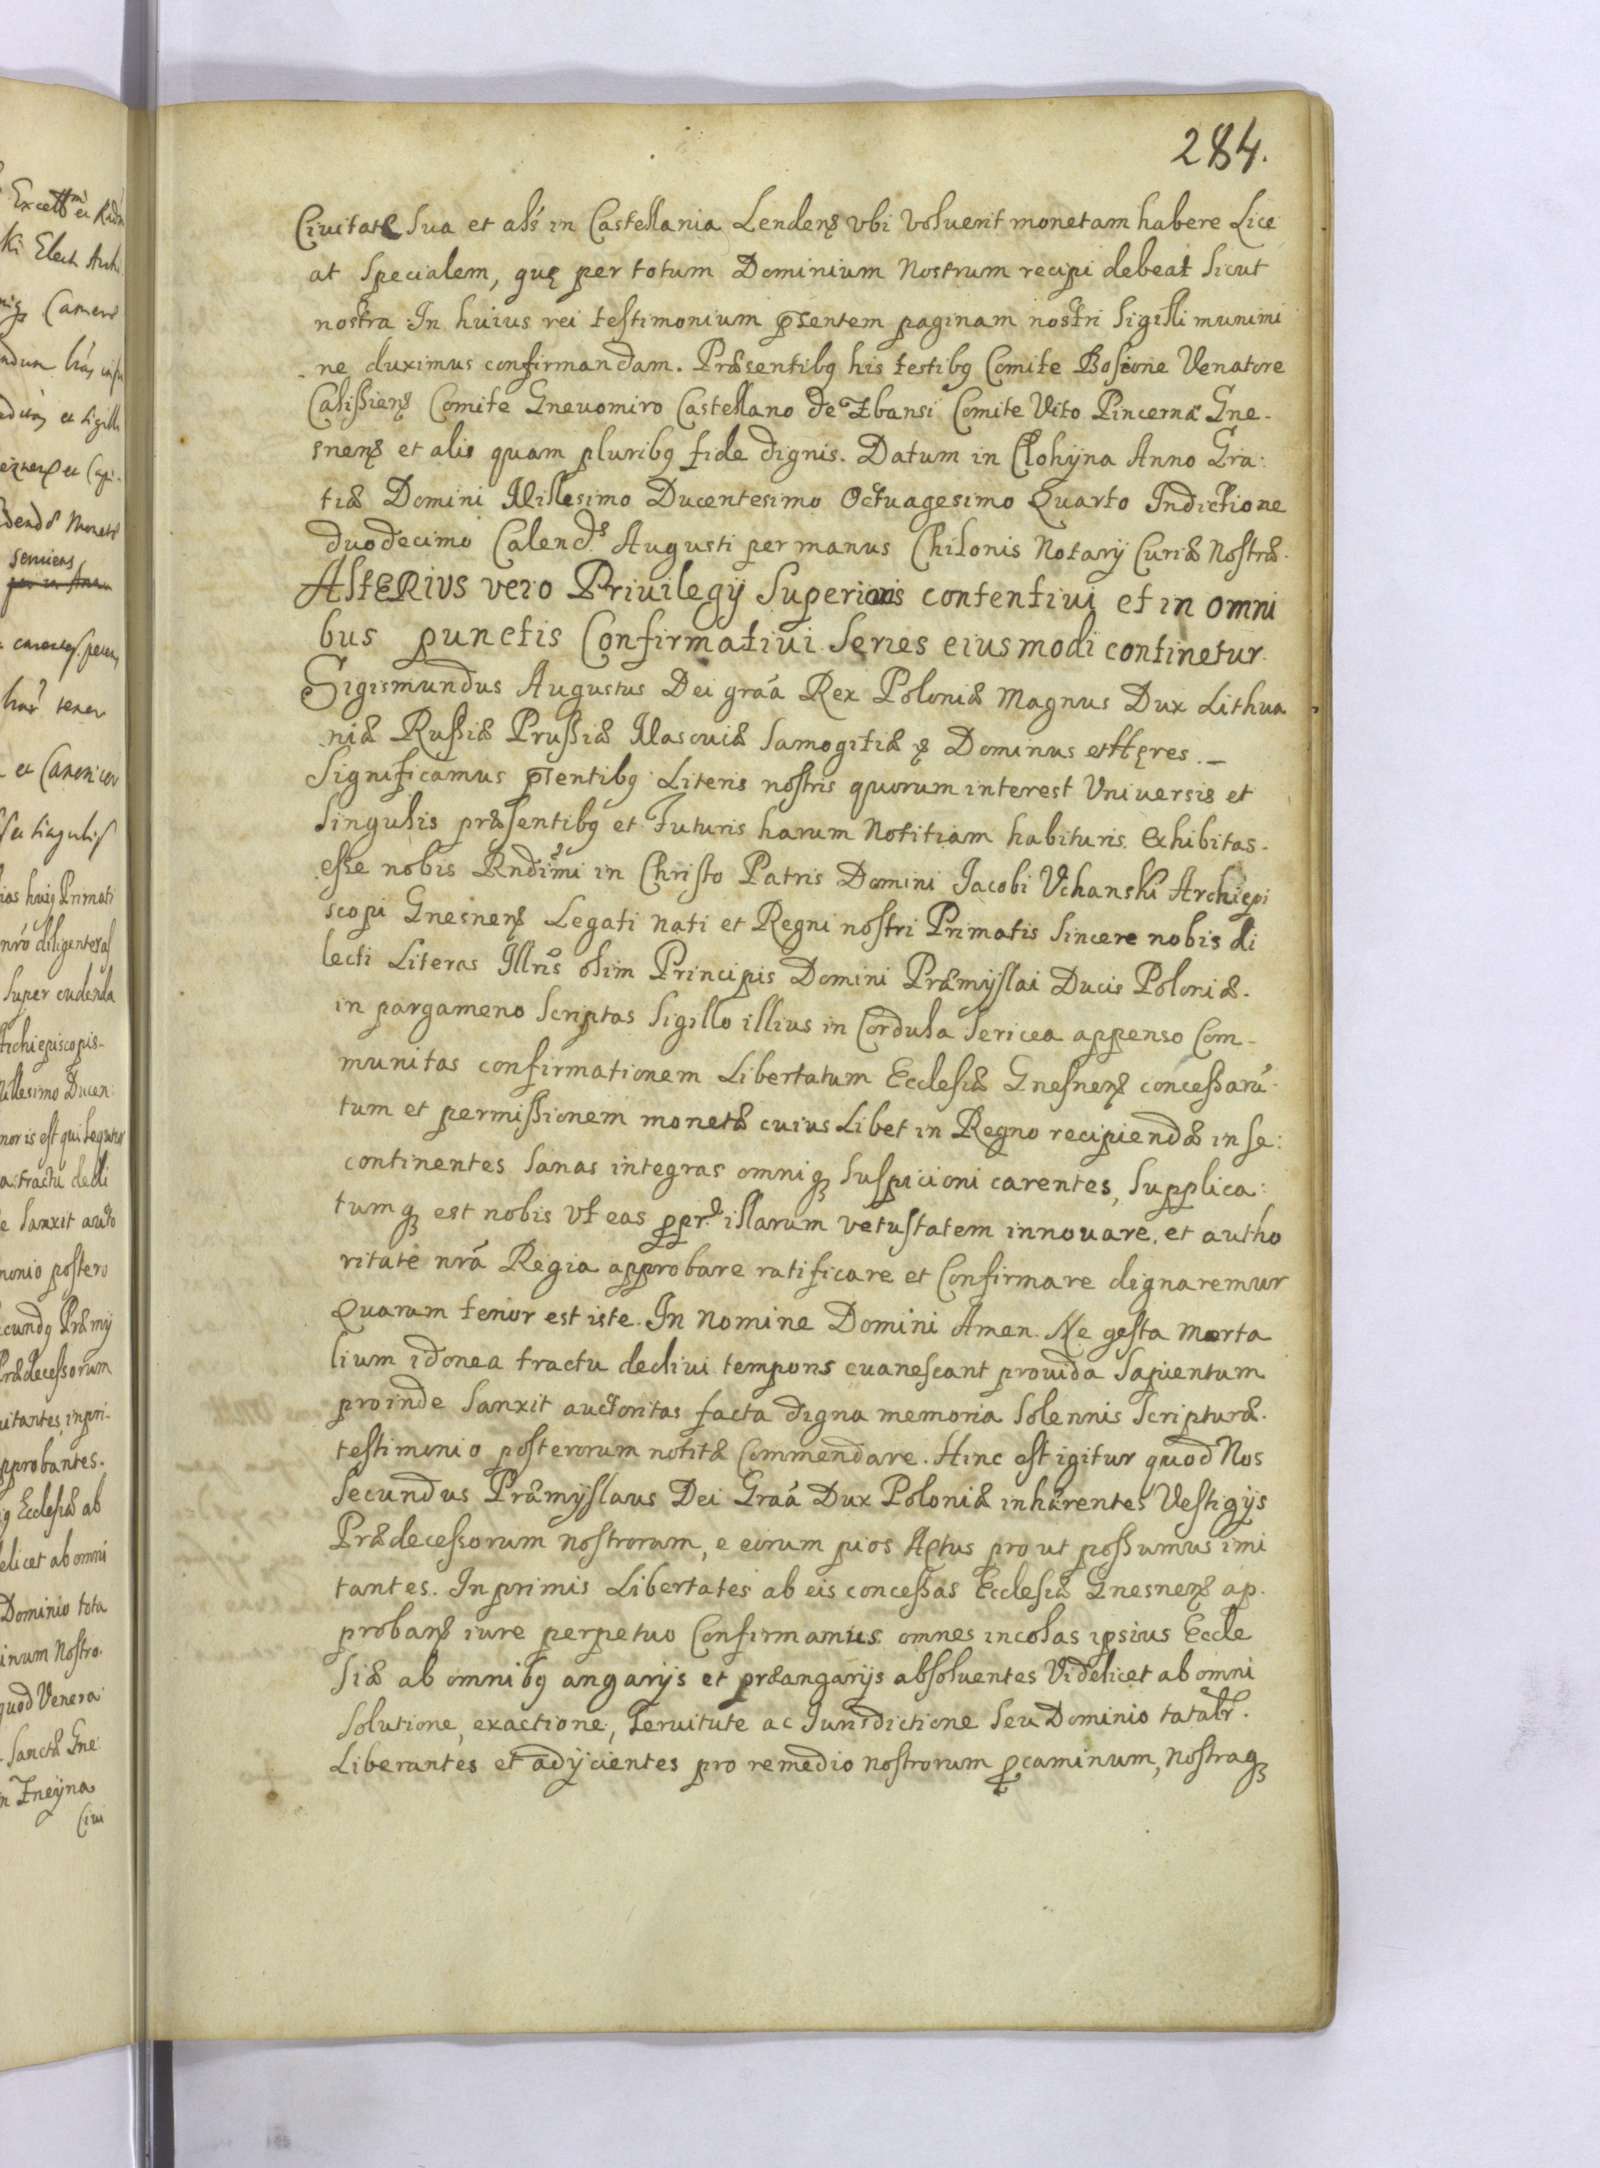 284.
Ciuitate Sua et alis in Castellania Lendens ubi Voluerit monetam habere Lice
at Specialem, quę per totum Dominium Nostrum recipi debeat Sicut
nostra In huius rei testimonium pñsentem paginam nostri Sigilli munimi
ne duximus confirmandam. Præsentibq his testibq Comite Bosione Venatore
Calissiens Comite Gneuomiro Castellano de Zbansi Comite Vito Pincerna Gne-
snens et alis quam pluribq fide dignis. Datum in Clohÿna Anno Gra:
tiæ Domini Millesimo Ducentesimo Octuagesimo Quarto Indictione
duodecimo Calend.s Augusti per manus Chilonis Notarÿ Curiæ Nostræ.
AltERius vero Priuilegÿ Superioris contentiui et in omni
bus punctis Confirmatiui Series eiusmodi continetur.
Sigismundus Augustus Dei graã Rex Poloniæ Magnus Dux Lithua
niæ Russiæ Prussiæ Masouiæ Samogitiæ Dominus et Hęres.
Significamus pñsentibq Literis nostris quorum interest Uniuersis et
Singulis præsentibq et Futuris harum Notitiam habituris. Exhibitas-
esse nobis Rndimi in Christo Patris Domini Jacobi Vchanski Archiepi
scopi Gnesnens Legati Nati et Regni nostri Primatis Sincere nobis di
lecti Literas Illris olim Principis Domini Præmÿslai Ducis Poloniæ.
in pargameno Scriptas Sigillo illius in Cordula Sericea appenso Com-
munitas confirmationem Libertatum Ecclesiæ Gnesnens concessarũ-
tum et permissionem monetæ cuius Libet in Regno recipiendæ in se:
continentes Sanas integras omniq suspicioni carentes, Supplica:
tumq est nobis Vt eas pper. illarum vetustatem innouare, et autho
ritate nrã Regia approbare ratificare et Confirmare dignaremur
Quarum tenor est iste. In Nomine Domini Amen. Ne gesta Morta
lium idonea tractu decliui temporis euanescant prouida Sapientum
proinde Sanxit auctoritas facta digna memoria Solennis Scripturæ.
testimonio posterorum notitæ Commendare. Hinc est igitur quod Nos
Secundus Præmÿslaus Dei Graã Dux Poloniæ inhærentes Vestigÿs
Prædecessorum Nostrorum, e eorum pios Actus prout possumus imi
tantes. In primis Libertates ab eis concessas Ecclesiæ Gnesnens ap-
probans iure perpetuo Confirmamus omnes incolas ipsius Eccle
siæ ab omnibq angarÿs et præangarÿs absoluentes Videlicet ab omni
Solutione, exactione, Seruitute ac Jurisdictione Seu Dominio totalr.
Liberantes et adÿcientes pro remedio nostrorum pcaminum, Nostraq